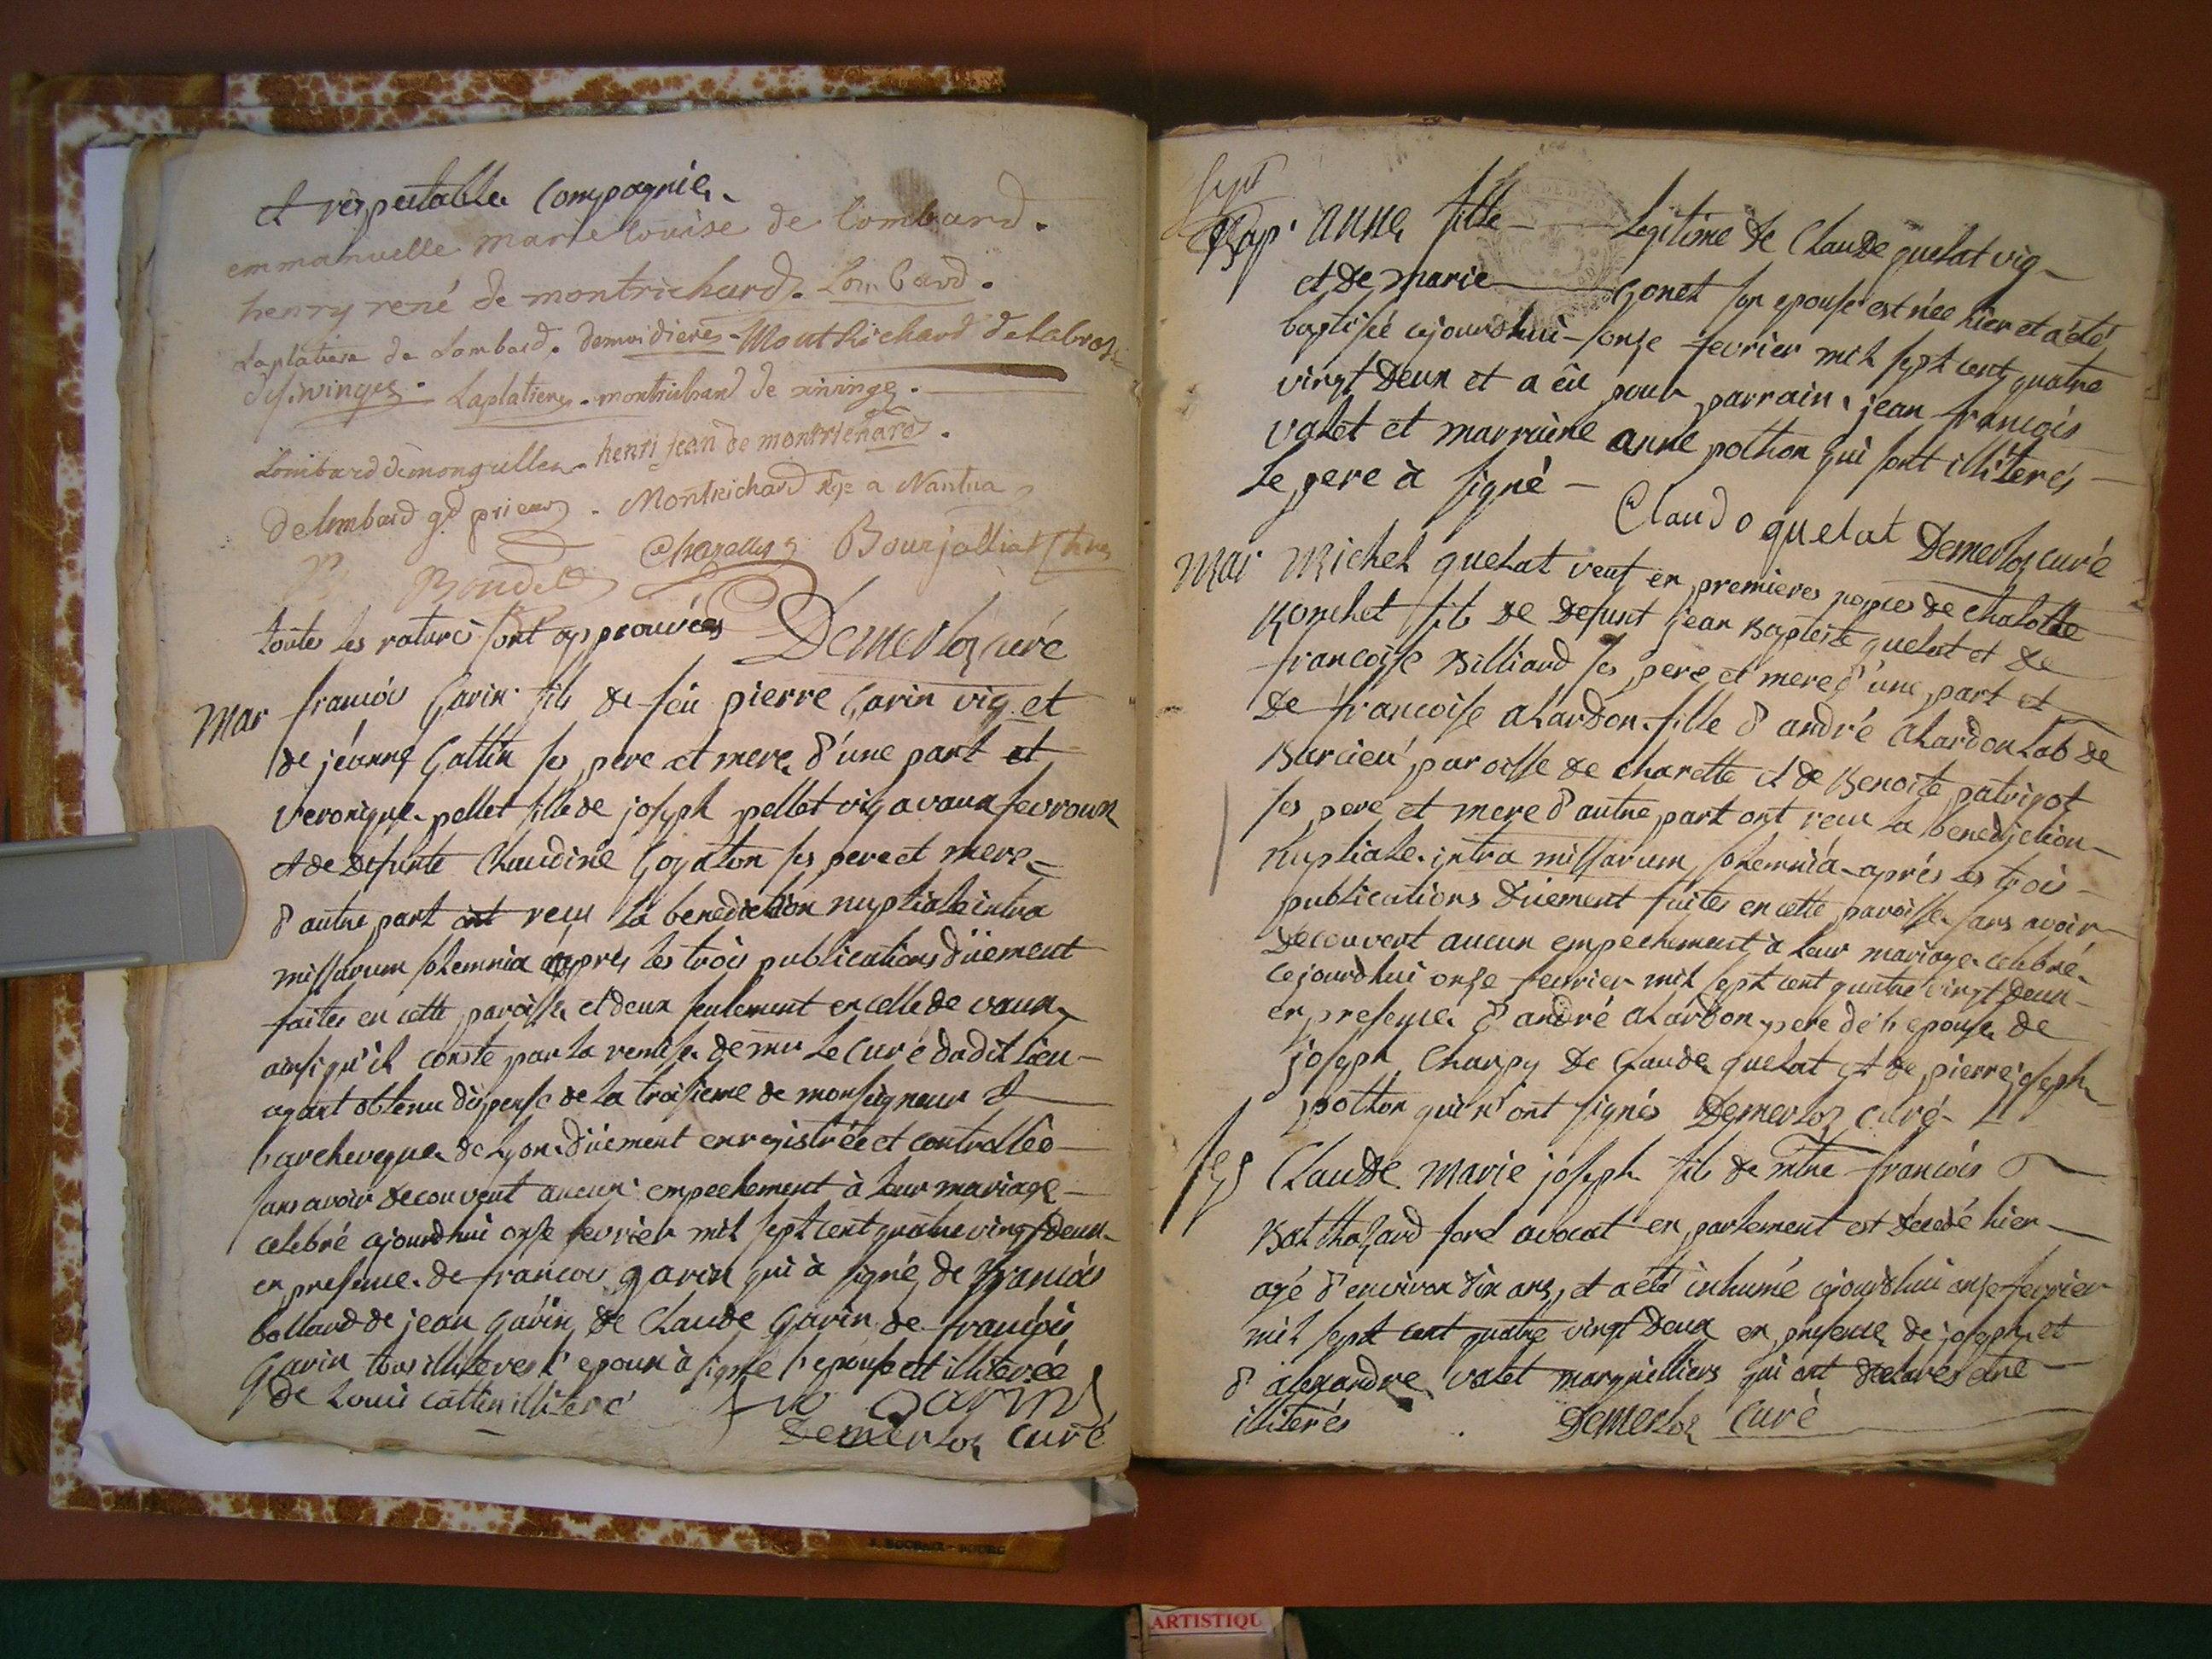 et respectable compagnie.
emmanuelle marie louise de lombard.
henry rené de montrichard. Lombard.
Laplatiere de Lombard. demvidieres. Montrichard delabrosse
Laplatiere. montrichard de
Lombard demongrillet. henri jean de montrichard.
de lombard gd prieur. Montrichard a Nantua
Chazelles Bourjalliat
Bondet
toutes les ratures sont approuvées Demerloz curé
Mar francois Garin fils de feu pierre Garin vig et
de jeanne Gattin ses pere et mere d'une part et
veronique pellet fille de joseph pellet vig a vaux fevroux
et de defunte Claudine Goyaton ses pere et mere
d'autre part ont recu la benediction nuptiale intra
missarum solemnia après les trois publications düement
faites en cette paroisse et deux seulement en celle de vaux
ainsi qu'il conste par la remise de mr Le Curé dudit lieu
ayant obtenu dispense de la troisieme de monseigneur
l'archeveque de Lyon düement enregistrée et contrallée
sans avoir decouvert aucun empechement à leur mariage
celebré cejourdhui onse fevrier mil sept cent quatre vingt deux
en presence de francois garin qui à signé de francois
bollard de jean garin de Claude Garin de francois
Garin tous illiteres l'epoux à signé l'epouse est illiterée
de Louis cattin illiteré f garin
Demerloz curé
sept
Bap. anne fille Legitime de Claude quelat vig
et de marie Gonet son epouse est née hier et a été
baptisée cejourdhui onse fevrier mil sept cent quatre
vingt deux et a êu pour parrain jean francois
valet et marraine anne pothon qui sont illiterés
Le pere à signé
Claudo quelat Demerloz curé
Mar Michel quelat veuf en premieres nopces de chalotte
Ronchet fils de defunt jean Baptiste quelat et de
francoise Billiaud ses pere et mere d'une part et
De francoise alardon fille d'andré alardon Lab de
Burcieu paroisse de charette et de Benoite patrigot
ses pere et mere d'autre part ont recu la benediction
nuptiale intra missarum solemnia après les trois
publications düement faites en cette paroisse sans avoir
decouvert aucun empechement à leur mariage celebré
cejourdhui onse fevrier mil sept cent quatre vingt deux
en presence d'andré alardon pere de l'epouse de
joseph Charpy de Claude quelat et de pierre joseph
pothon qui n'ont signés Demerloz curé
Sep Claude Marie joseph fils de mtre francois
Balthasard sord avocat en parlement est decedé hier
agé d'environ dix ans, et a été inhumé cejourdhui onse fevrier
mil sept cent quatre vingt deux en presence de joseph et
d'alexandre valet marguilliers qui ont declarés etre
illiterés Demerloz Curé
ARTISTIQU